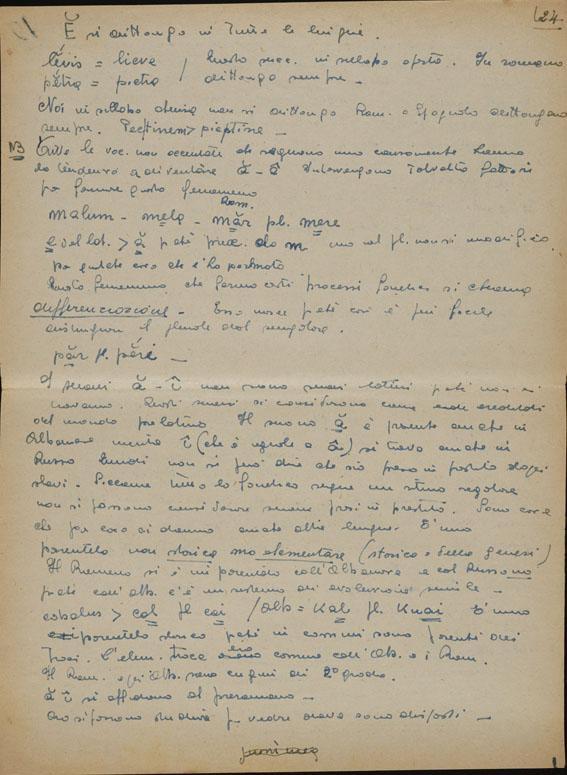 24
Ĕ si dittongo in tutte le lingue.
lĕvis = lieve / Questo succ. in sillaba aperta. In romeno
pĕtra = pietra / dittonga sempre –
Noi in sillaba chiusa non si dittonga Rom. e Spagnolo dittongano
sempre. Pectinem > pieptine –
NB Tutte le voc. non accentate che seguono una consonante hanno
la tendenza a diventare ă - î Intervengono talvolta fattori
per fermare questo fenomeno
Rom.
malum - mela - măr pl. mere
e del lat. > ă prec. da m ma nel pl. non si modifica
per qualche cosa che è
Questo fenomeno che certi processi fonetici si chiama
differenziazione – Esso nasce così è più facile
distinguere il plurale dal singolare.
păr pl. peri –
I suoni ă - î non sono suoni latini non si
trovano. Questi suoni si considerano come eredità
del mondo prelatino Il suono ă è presente anche in
Albanese mentre î (che è uguale a â) si trova anche in
Russo Quindi non si può dire che sia preso in prestito dagli
slavi. Siccome tutta la fonetica segue un ritmo regolare
non si possono considerare suoni presi in prestito. Sono cose
che per caso si danno anche altre lingue. È una
parentela non storica ma elementare (storica = della genesi)
Il Rumeno si è imparentato coll'Albanese e col Russo no
coll'alb. c'è un sistema di evoluzione simile –
caballus > cal pl. cai / Alb = Kal pl. Kuai È una
parentela storica in comune sono parenti dei
Traci. L'elem. trace era comune coll'Alb. e i Rom.
Il Rom. e gli Alb. sono cugini di 2° grado.
ă î si al preromano –